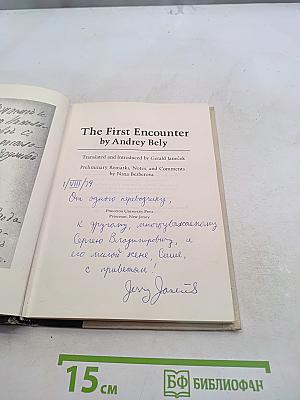 The First Encounter
by Andrey Bely
Translated and Introduced by Gerald Janeček
Preliminary Remarks, Notes, and Comments
by Nina Berberova
1/VIII/79
От одного переводчику,
Princeton University Press
Princeton, New Jersey
к другому, многоуважаемому
Сергею Владимировичу, и
его милой жене, Саше,
с приветом!
Jerry Janeček
15 см
БФ БИБЛИОФАН